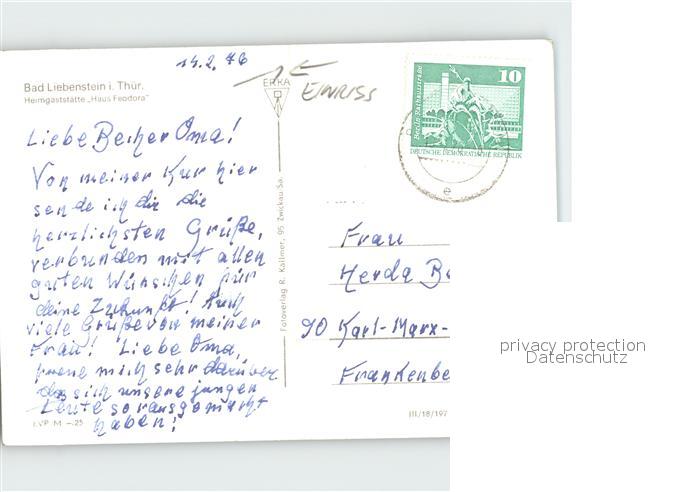 14.2.76
Bad Liebenstein i. Thür.
Heimgaststätte „Haus Feodora"
ERKA
EINRISS
10
Berlin Rathausstraße
DEUTSCHE DEMOKRATISCHE REPUBLIK
e
Liebe Becher Oma!
Von meiner Kur hier
sende ich dir die
herzlichsten Grüße,
verbunden mit allen
guten Wünschen für
deine Zukunft! Auch
viele Grüße von meiner
Frau! Liebe Oma,
freue mich sehr darüber
das sich unsere jungen
Leute so rausgemacht
haben!
I.VP M -.25
Fotoverlag R. Kallmer, 95 Zwickau Sa.
Frau
Herda B
90 Karl-Marx-
Frankenbe
III/18/197
privacy protection
Datenschutz